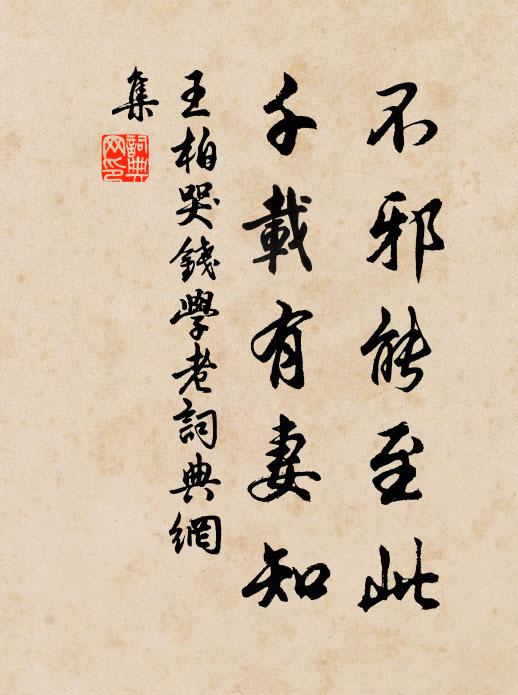 不邪能至此
千載有妻知
王柏哭錢學老詞典網
集
詞典網印